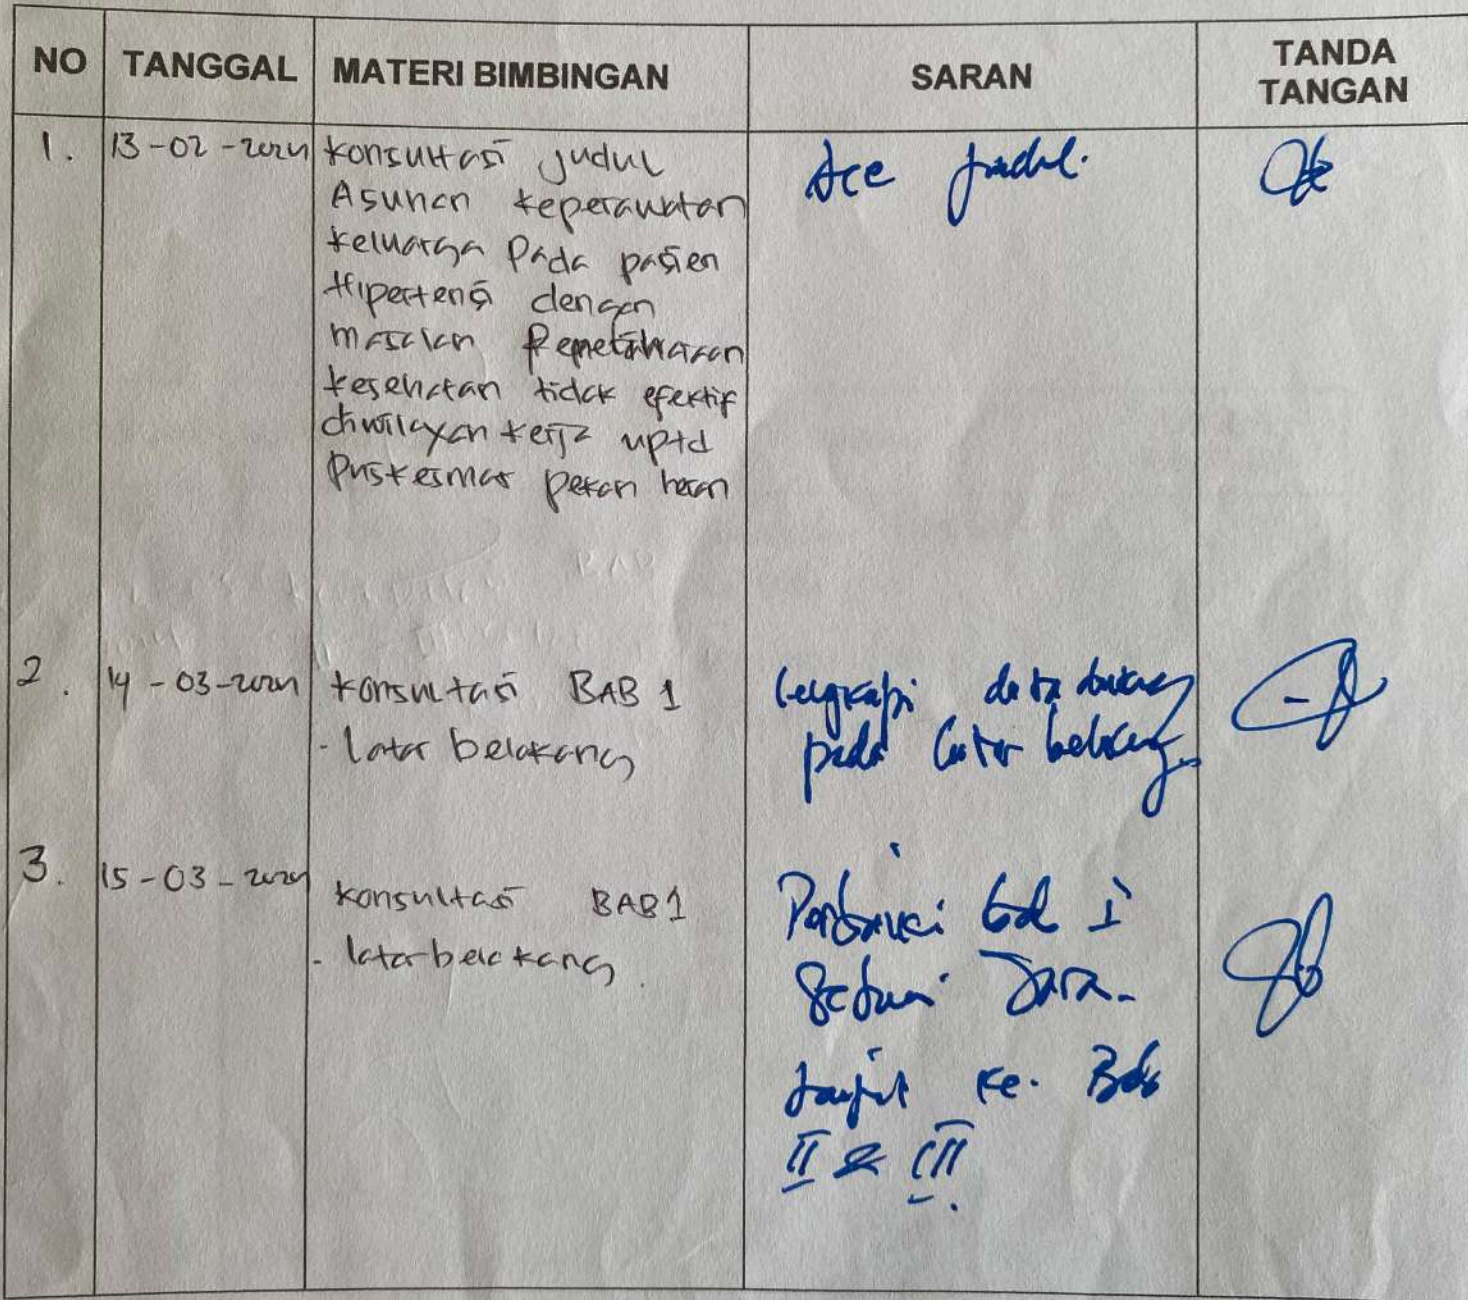 NO TANGGAL MATERI BIMBINGAN SARAN TANDA TANGAN
1. 13-02-2024 Konsultasi judul
Asuhan keperawatan
keluarga pada pasien
Hipertensi dengan
masalah Pemeliharaan
kesehatan tidak efektif
diwilayah kerja uptd
puskesmas pekan heran
Acc judul.
2. 14-03-2024 Konsultasi BAB 1
- latar belakang
Lengkapi data
pada latar belakang
3. 15-03-2024
Konsultasi BAB 1
- latar belakang
Perbaiki Bab I
Sesuai Saran
Lanjut ke. Bab
II & III.